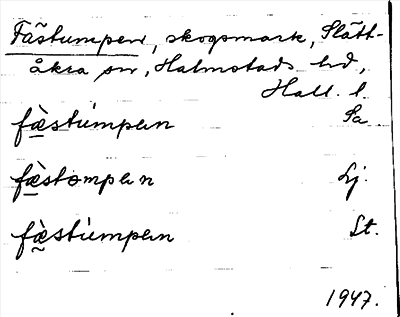 Fästumpen, skogsmark, Slätt-
åkra sn, Halmstads hd,
Hall. l.
fæ̀stúmpen Sa.
fæ̀stompen Lj.
fæ̀stúmpen St.
1947.